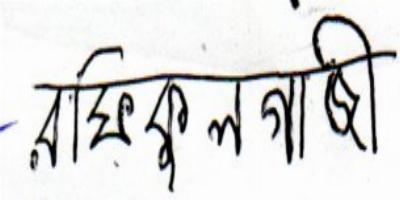 রফিকুল গাজী